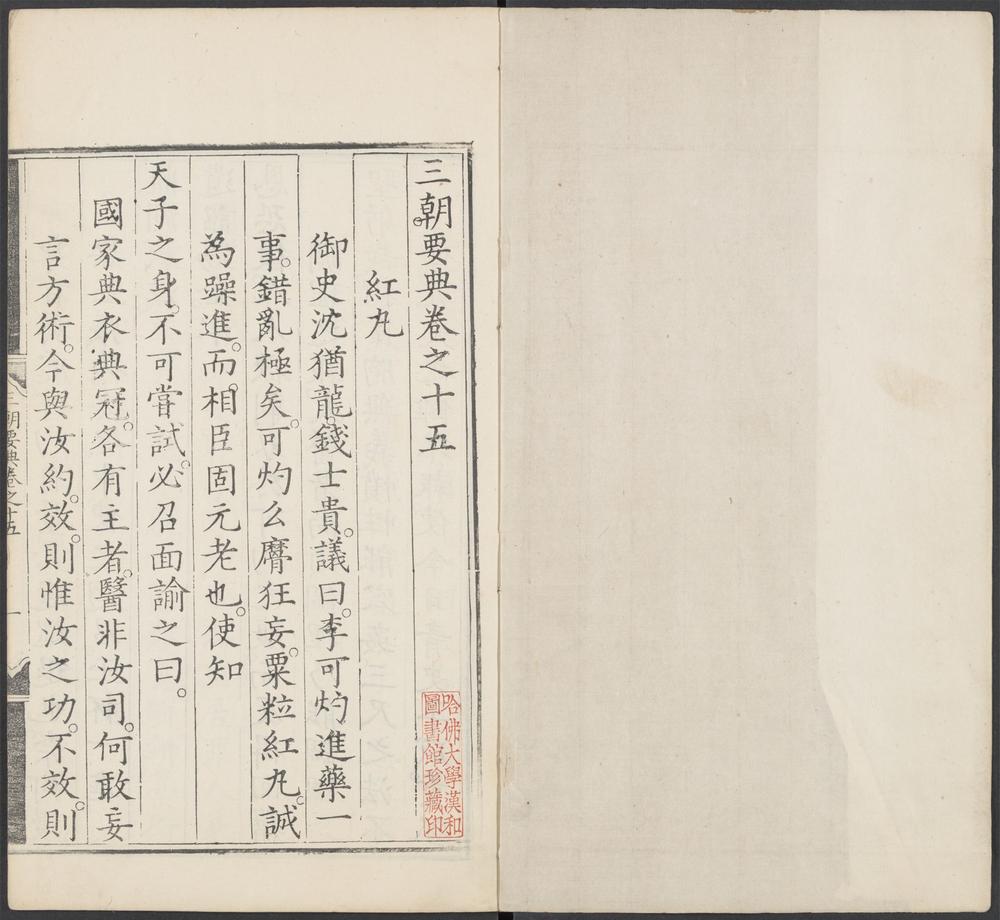 三朝要典卷之十五
紅丸
御史沈猶龍。錢士貴。議曰。李可灼進藥一
事。錯亂極矣。可灼么麿狂妄。粟粒紅丸。誠
為躁進。而相臣固元老也。使知
天子之身。不可嘗試。必召面諭之曰。
國家典衣典冠。各有主者。醫非汝司。何敢妄
言方術。今與汝約。效則惟汝之功。不效。則
三朝要典卷之十五 一
哈佛大學漢和
圖書館珍藏印